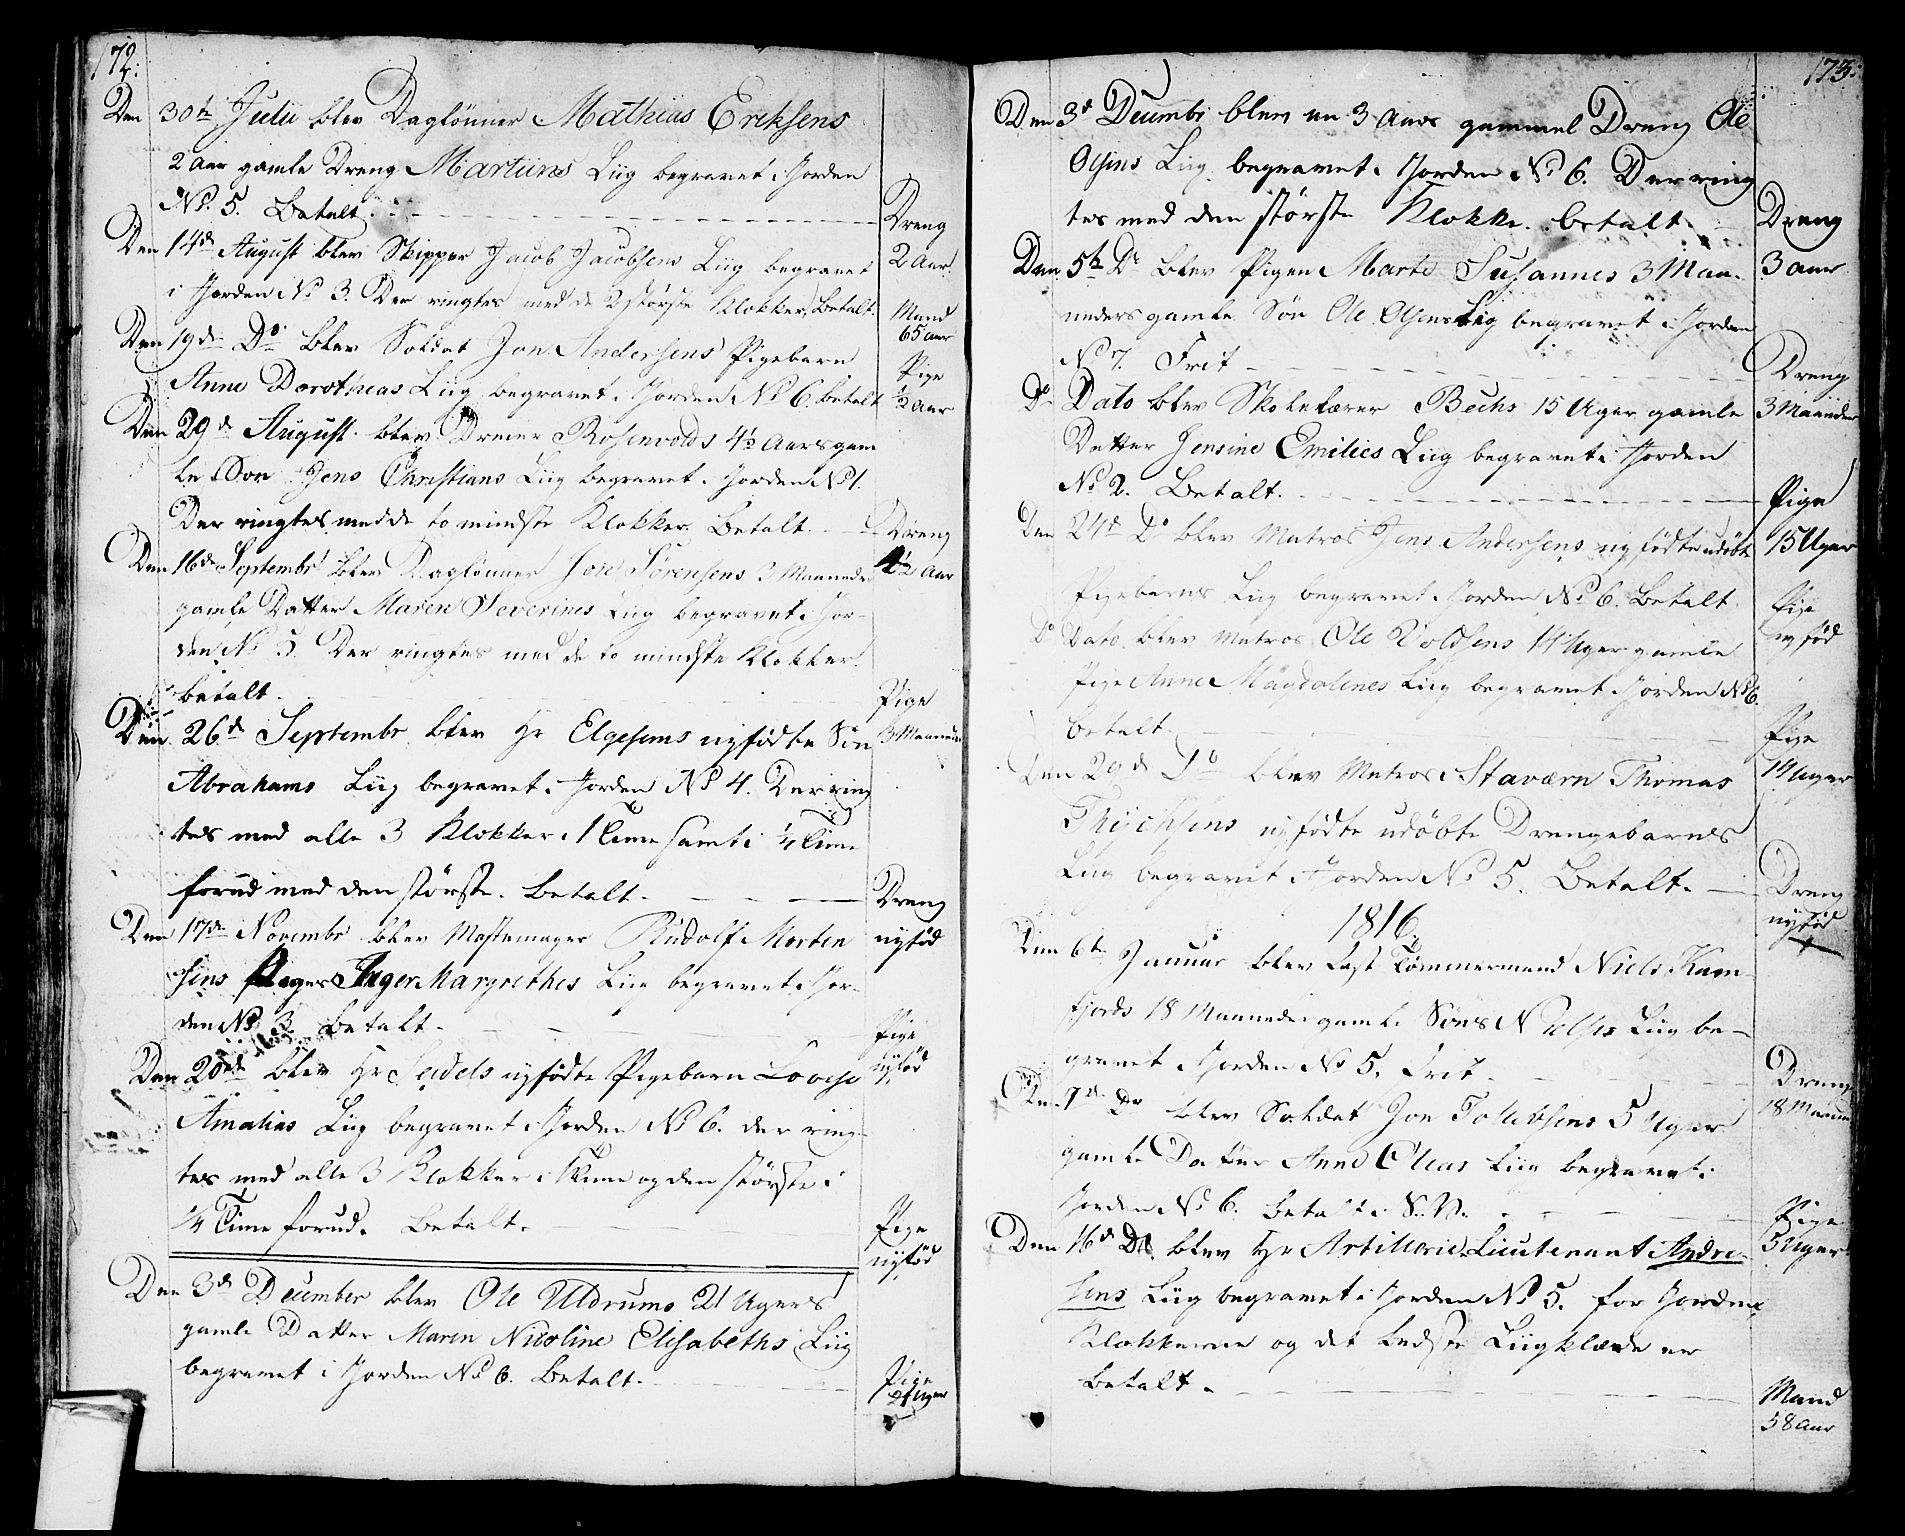 172.
Den 30te Julii blev Daglönner Mathias Eriksens
2 Aar gamle Dreng Martiins Liig begravet i Jorden
No. 5. Betalt.
Dreng
2 Aar.
Den 14de August blev Skipper Jacob Jacobsens Liig begravet
i Jorden No 3. Der ringtes med de 2 störste Klokker, Betalt.
Mand
65 aar
Den 19de Do blev Soldat Jon Andersens Pigebarn
Anne Dorotheas Liig begravet i Jorden No 6. betalt
Pige
1/2 Aar
Den 29de August blev Dreier Rosenvolds 4½ Aars gam
le Sön Jens Christians Liig begravet i Jorden No 1.
Der ringtes med de to mindste Klokker. Betalt.
Dreng
4½ Aar
Den 16de Septembr blev Daglönner Jon Sörensens 3 Maaneder
gamle Datter Maren Severines Liig begravet i Jor-
den No 5. Der ringtes med de to mindste Klokker.
betalt.
Pige
3 Maaneder
Den 26de Septembr blev Hr Elgesems nyfödte Sön
Abrahams Liig begravet i Jorden No 4. Der ring
tes med alle 3 Klokker i 1 Time samt i 1/4 Time
forud med den störste. Betalt.
Dreng
nyföd
Den 17de Novembr blev Mastemager Rudolf Morten
sens Piges Inger Margrethes Liig begravet i Jor-
den No 3. Betalt.
Pige
nyföd
Den 20de blev Hr Seidels nyfödte Pigebarn Lovise
Amalias Liig begravet i Jorden No 6. der ring-
tes med alle 3 Klokker i 1 Time og den störste i
1/4 Time forud. Betalt.
Pige
nyföd
Den 3de December blev Ole Uldrums 21 Ugers
gamle Datter Maren Nicoline Elisabeths Liig
begravet i Jorden No 6. Betalt.
Pige
21 Uger
173.
Den 3de Decembr blev en 3 Aars gammel Dreng Ole
Olsens Liig begravet i Jorden No 6. Der ring
tes med den störste Klokke. betalt.
Dreng
3 aar
Den 5te Do blev Pigen Marte Susannes 3 Maa-
neders gamle Sön Ole Olsens Liig begravet i Jorden
No 7. Frit
Dreng
3 Maaneder
Do Dato blev Skolelærer Bechs 15 Uger gamle
Datter Jensine Emilies Liig begravet i Jorden
No 2. Betalt.
Pige
15 Uger
Den 24de Do blev Matros Jens Andersens nyfödte udöbte
Pigebarns Liig begravet i Jorden No 6. Betalt.
Pige
nyföd
Do Dato blev Matros Ole Voldsens 14 Uger gamle
Pige Anne Magdalenes Liig begravet i Jorden No 6.
betalt.
Pige
14 Uger
Den 29de Do blev Matros i Staværn Thomas
nyfödte udöbte Drengebarnes
Liig begravet i Jorden No 5. Betalt.
Dreng
nyföd
1816.
Den 6te Januar blev fast Tömmermand Niels Kam-
fjords 18 Maaneder gamle Söns Liig be-
gravet i Jorden No 5. Frit.
Dreng
18 Maaned
Den 7de Do blev Soldat Jon Tollebsens 5 Uger
gamle Datter Anne Oleas Liig begravet i
Jorden No 6. betalt i S. V.
Pige
5 Uger
Den 16de Do blev Hr Artillerie Lieutenant Andre-
sens Liig begravet i Jorden No 5. for Jorden,
Klokkerne og det bedste Liigklæde er
betalt.
Mand
58 aar